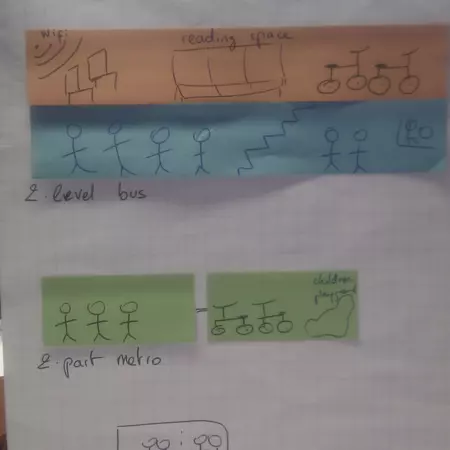 Wifi
reading space
2. level bus
children
playground
2. part metro